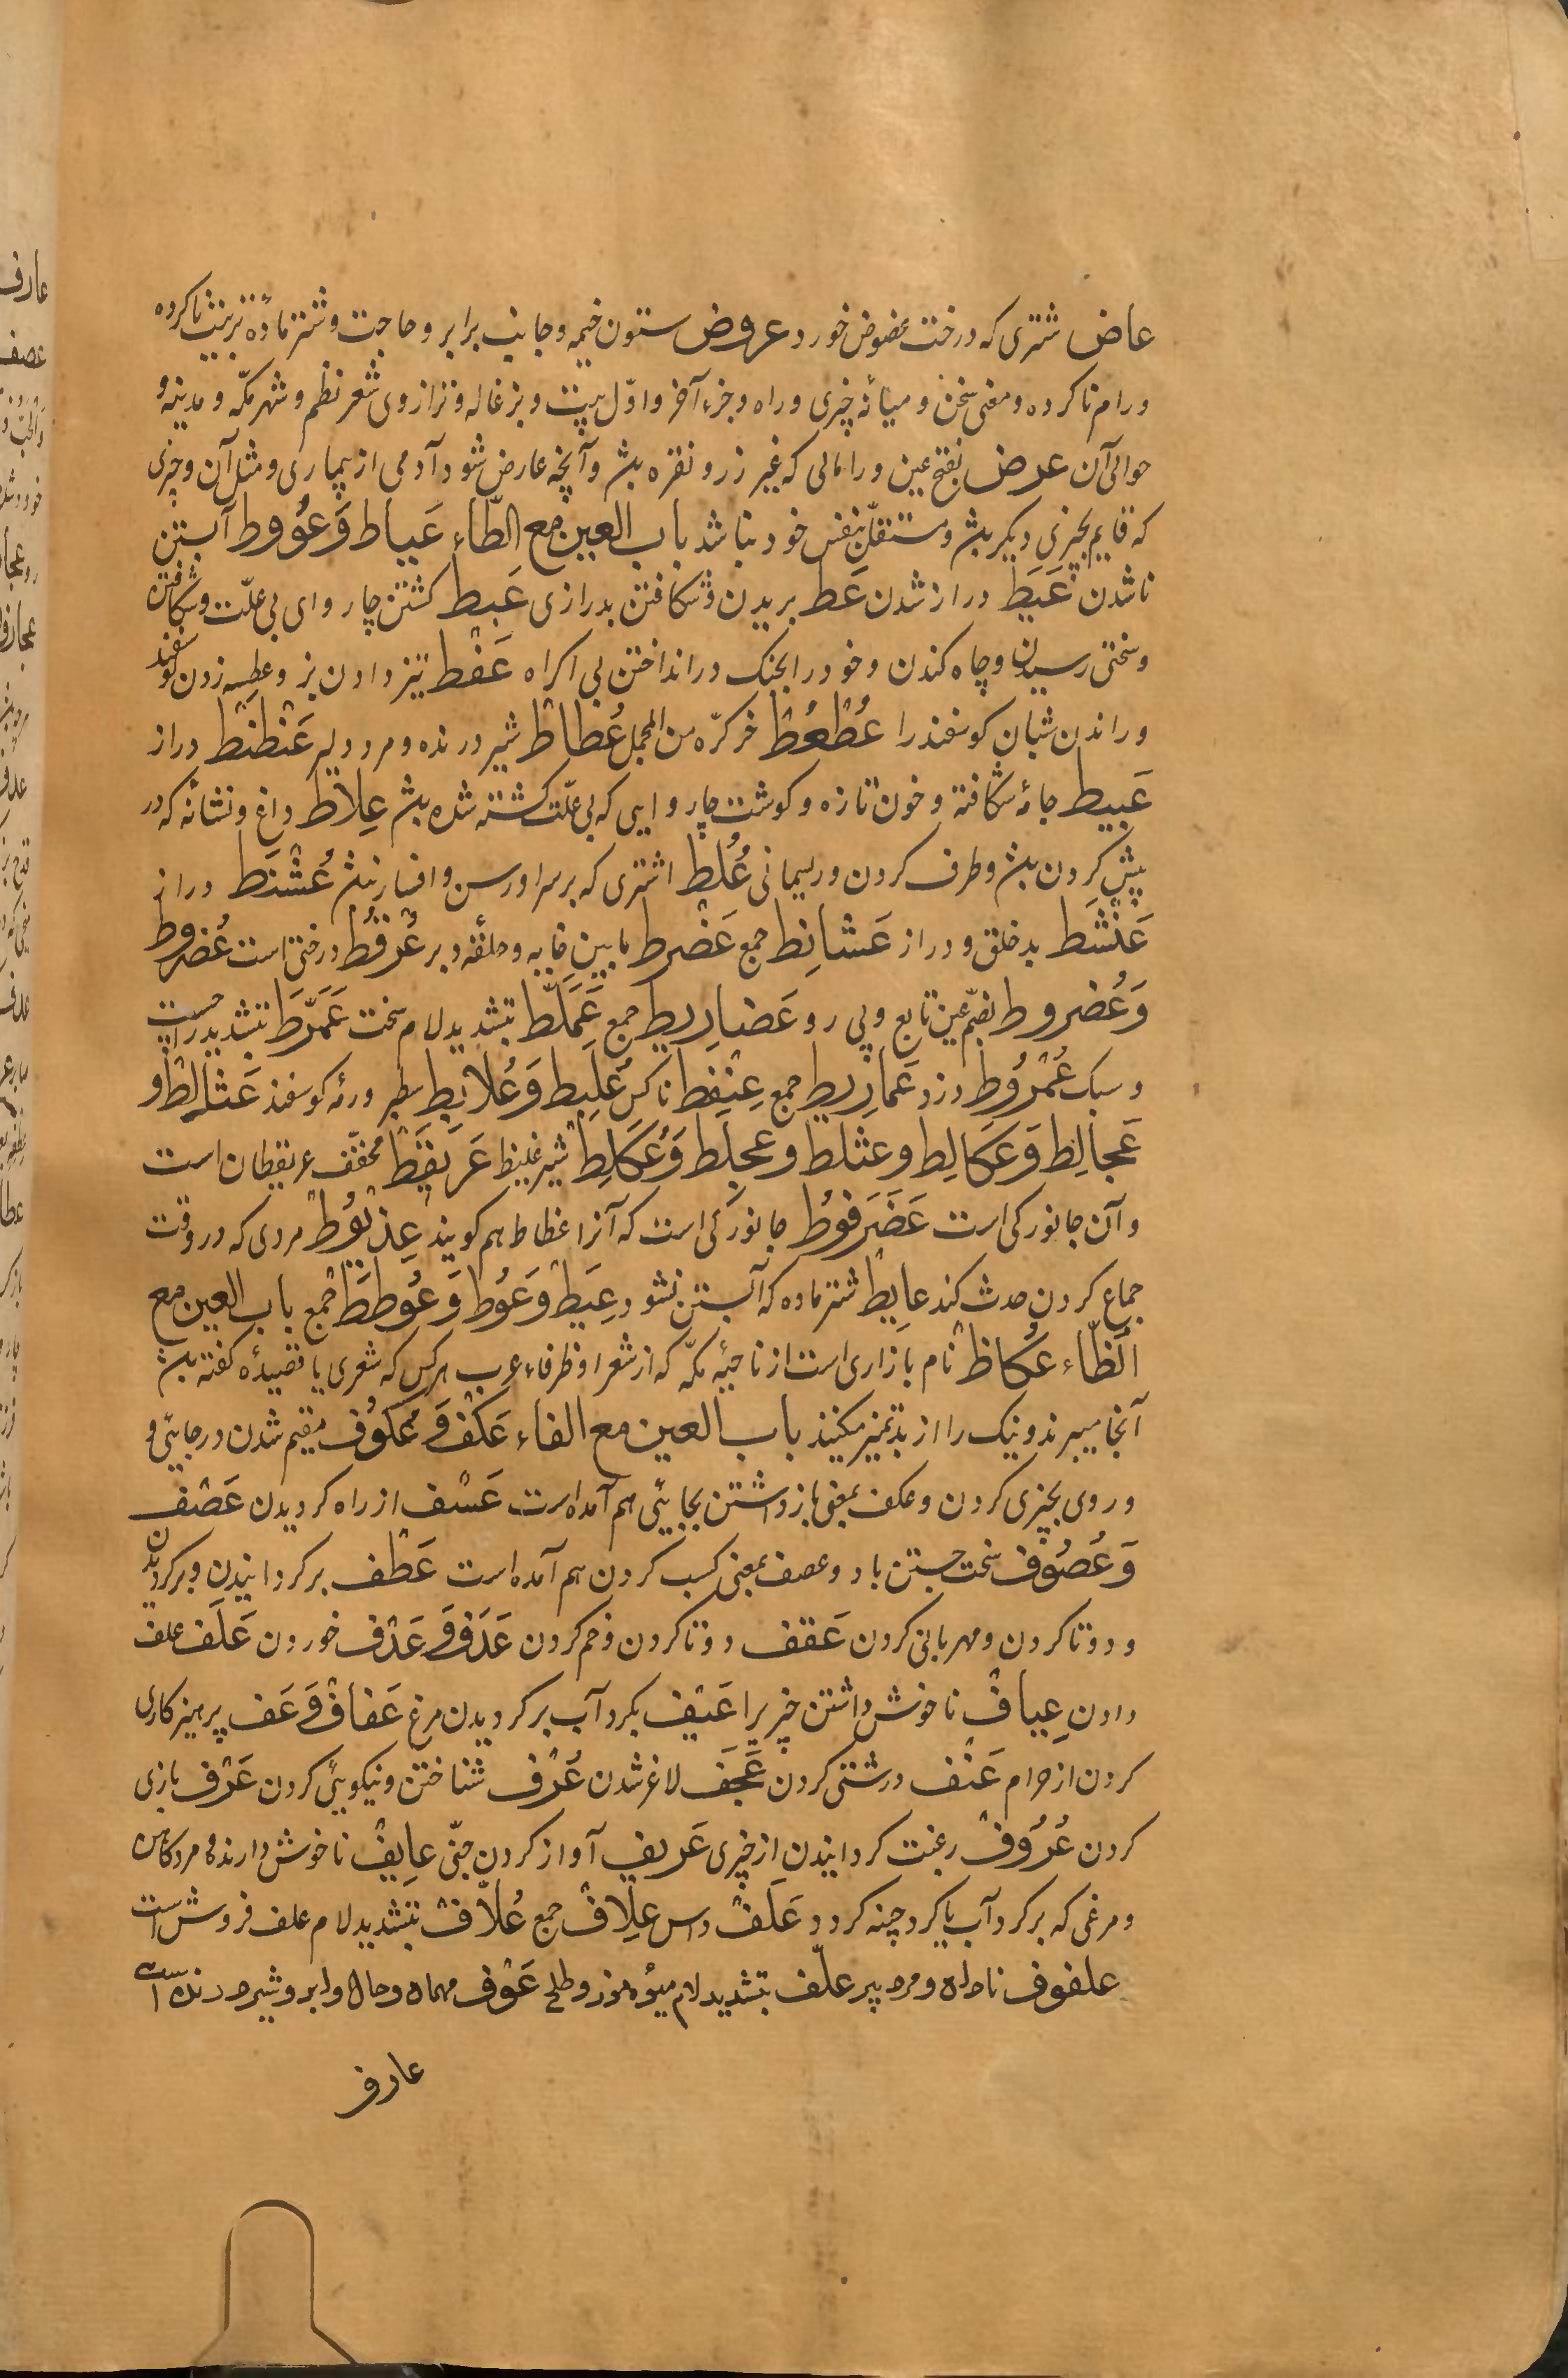 عاض شتری که درخت عضوض خورد عروض ستون خیمه و جانب برابر و حاجت و شتر مادهٔ تربیت ناکرده
و رام ناکرده و معنی سخن و میانهٔ چیزی و راه و جزء آخر و اوّل بیت و بزغاله و ترازوی شعر نظم و شهر مکّه و مدینه و
حوالی آن عرض بفتح عین و را مالی که غیر زر و نقره باشد و آنچه عارض شود آدمی از بیماری و مثل آن و چیزی
که قایم بچیزی دیکر باشد و مستقلّ بنفس خود نباشد باب العین مع الطّاء عَیاط وَعُوُوط آبستن
ناشدن عَیَط دراز شدن عَط بریدن و شکافتن بدرازی عَبط کشتن چاروای بی علّت و شکافتن
و سختی رسیدن و چاه کندن و خود را بجنک در انداختن بی اکراه عَفْط تیز دادن بز و عطسه زدن کوسفند
و راندن شبان کوسفند را عُطْعُطْ خر کرّه من المجمل عُطاطْ شیر درنده و مرد دلیر عَنْطْنَط دراز
عَبیط جامهٔ شکافته و خون تازه و کوشت چاروایی که بی علّت کشته شده باشد عِلاط داغ و نشانه که در
پیش کردن باشد و طرف کردن و ریسمانی عُلُطْ اشتری که بر سر او رسن و افسار نباشد عُشْنَط دراز
عَنْشَط بد خلق و دراز عَشانِط جمع عَضْرط ما بین خایه و حلقهٔ دبر عُرْفُط درختی است عُضروط
وَعُضروط بضمّ عین تابع و پی رو عَضاریط جمع عَمَلَّط بتشدید لام سخت عَمَرَّط بتشدید را چست
و سبک عُمْرُوط دزد عَمارِیط جمع عِنْفِط ناکس عُلَبِط وَعُلابِط سطبر و رمهٔ کوسفند عَثالِط و
عَجالِط وَعَکالِط و عثلط و عجلط وَعُکَلِط شیر غلیظ عَریقَطْ مخفّف عریقطان است
و آن جانورکی است عَضْرَفوُط جانورکی است که آنرا عظاط هم کویند عِذْیوُط مردی که در وقت
جماع کردن حدث کند عایِط شتر ماده که آبستن نشود عِیَط وَعوُط وَعوُطَط جمع باب العین مع
الظّاء عُکاظْ نام بازاری است از ناحیهٔ مکّه که از شعرا و ظرفاء عرب هرکس که شعری یا قصیدهٔ کفته باشد
آنجا میبرند و نیک را از بد تمیز میکنند باب العین مع الفاء عَکْف وَعُکوُف مقیم شدن در جایی و
و روی بچیزی کردن و عکف بمعنی باز داشتن بجایی هم آمده است عَسْف از راه کردیدن عَصْف
وَعُصوُف سخت جستن باد و عصف بمعنی کسب کردن هم آمده است عَطْف برکردانیدن و برکردیدن
و دوتا کردن و مهربانی کردن عَقف دوتا کردن و خم کردن عَدَف وَعَدْف خوردن عَلَف علف
دادن عِیاف ناخوش داشتن چیزیرا عَیْف بکرد آب برکردیدن مرغ عَفاف وَعَف پرهیزکاری
کردن از حرام عَنْف درشتی کردن عَجَف لاغر شدن عُرْف شناختن و نیکویی کردن عَزْف بازی
کردن عُزُوف رغبت کردانیدن از چیزی عَزیف آواز کردن جنّی عایِف ناخوش دارنده و مرد کاهن
و مرغی که برکرد آب یا کرد چینه کردد عَلَف واس عِلاف جمع عُلّاف بتشدید لام علف فروش است
علفوف نادان و مرد پیر علّف بتشدید لام میوه موز و طلح عَوْف مهمان و حال و ابر و شیر درنده است
عارف